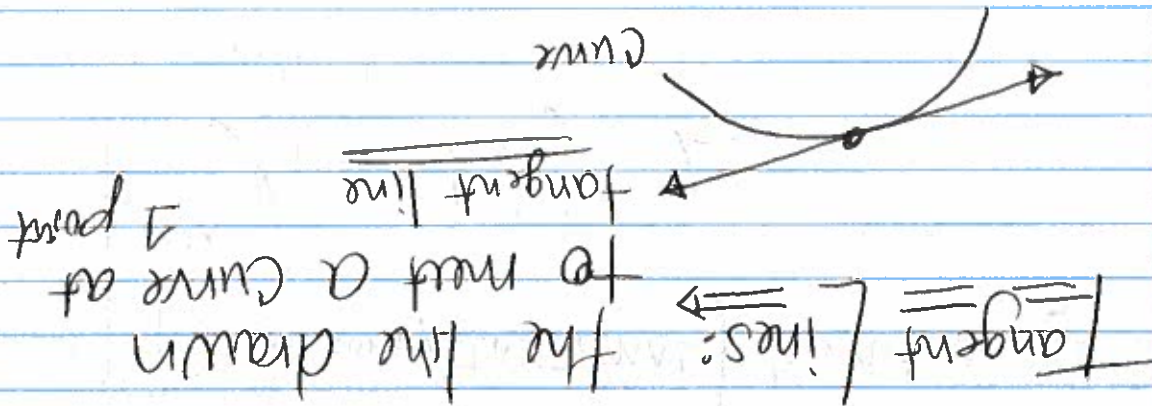 Tangent Lines: the line drawn
to meet a curve at
1 point
tangent line
curve